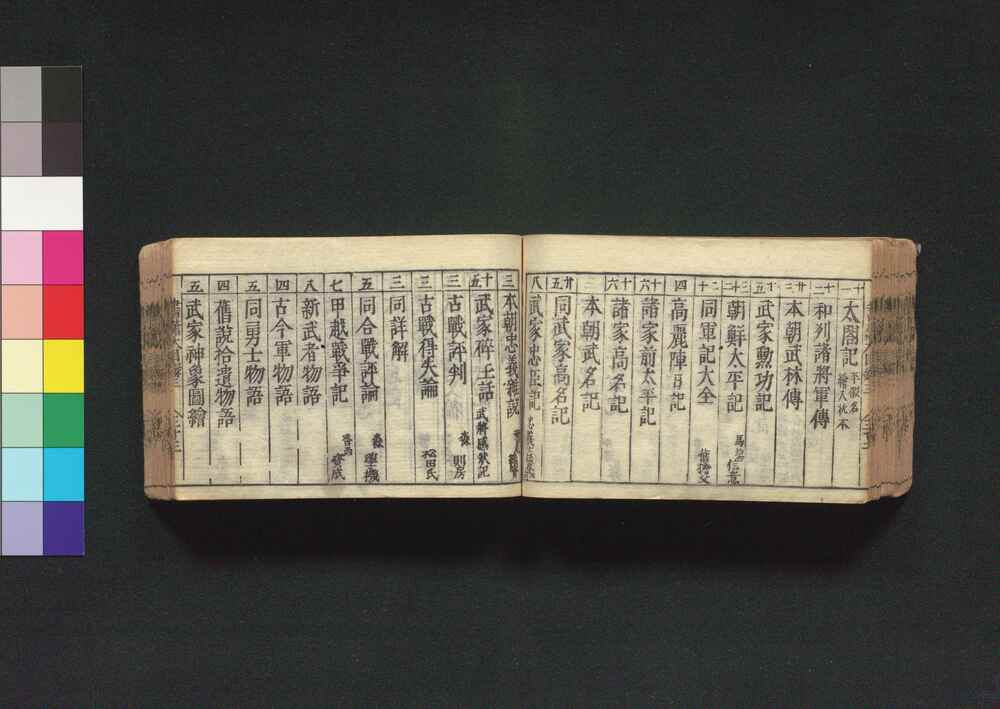 十一 太閤記 平假名 繪入 枕本
十二 和列諸將軍傳
廿三 本朝武林傳
十五 武家勲功記
二十二 朝鮮太平記 馬場信意
十二 同軍記大全
四 高麗陣日記
十六 諸家前太平記
十六 諸家高名記
三 本朝武名記
廿五 同武家高名記
八 武家忠臣記
三 本朝忠義雜説
十五 武家碎玉話 武辨感状記
三 古戰評判 森則房
三 古戰得失論
三 同詳解
五 同合戰評論
七 甲越戰爭記
八 新武者物語
四 古今軍物語
五 同勇士物語
四 舊說拾遺物語
五 武家神象圖繪